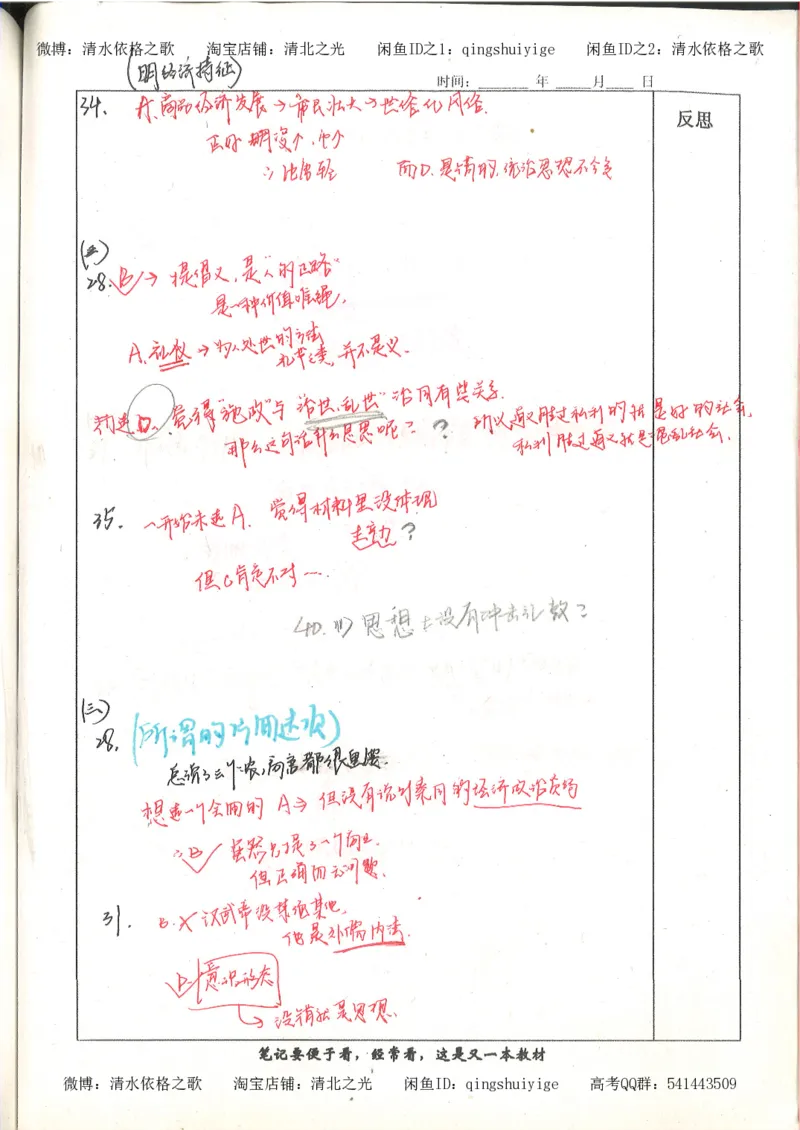 微博：清水依格之歌 淘宝店铺：清北之光 闲鱼ID之1：qingshuiyige 闲鱼ID之2：清水依格之歌
(明经济特征)
时间：＿＿＿ 年 ＿＿月＿＿ 日
反思
34. A.商品经济发展→市民壮大→世俗化风俗.
正好明没个，个个
∴比富轻 而D.是清的,统治思想不会变
(二)
28. B✓→提倡义,是"人的正路"
是一种价值准绳,
A.礼数→为人处世的方法
礼节之类,并不是义.
初选D. 觉得"施政"与"治世、乱世"治国有些关系.
那么这句话什么意思呢？？
所以义胜过私利的就是好的社会,
私利胜过义就是混乱社会.
35. 一开始未选A. 觉得材料里没体现
走主动？
但C肯定不对….
40.(1) 思想上没有冲击礼教？
(三)
28. (所谓的片面选项)
总说了三个:农,商言都很重要.
想选一个全面的A→但没有说对采用的经济政治实场
∴B✓ 虽然只提了一个商业.
但正确回答问题.
31. B.✗汉武帝没禁绝其他,
他是外儒内法.
D✓ 意识形态
→没错就是思想.
笔记要便于看，经常看，这是又一本教材
微博：清水依格之歌 淘宝店铺：清北之光 闲鱼ID：qingshuiyige 高考QQ群：541443509